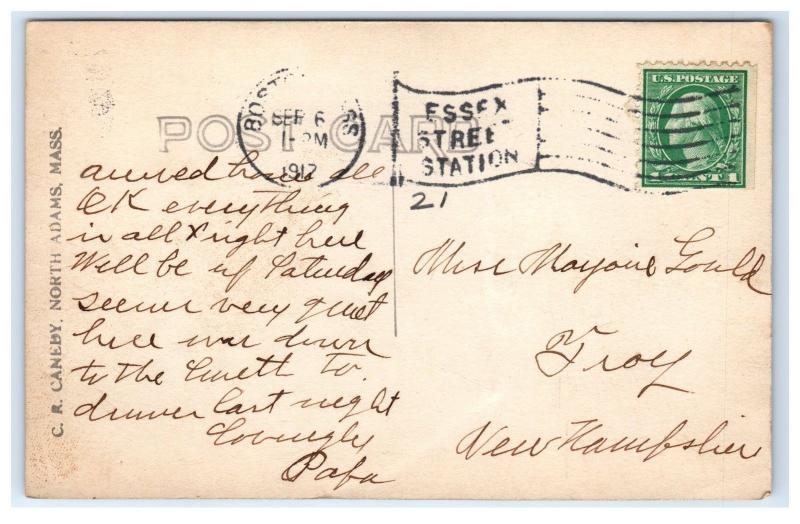 POST CARD
BOSTON MASS
SEP 6
1-PM
1917
ESSEX
STREET
STATION
U.S. POSTAGE
1 CENT 1
21
C. R. CANEDY, NORTH ADAMS, MASS.
arrived here all
OK everything
in all right here
Will be up Saturday
seems very quiet
here was down
to the to
dinner last night
Lovingly
Papa
Miss Marjorie Gould
Troy
New Hampshire